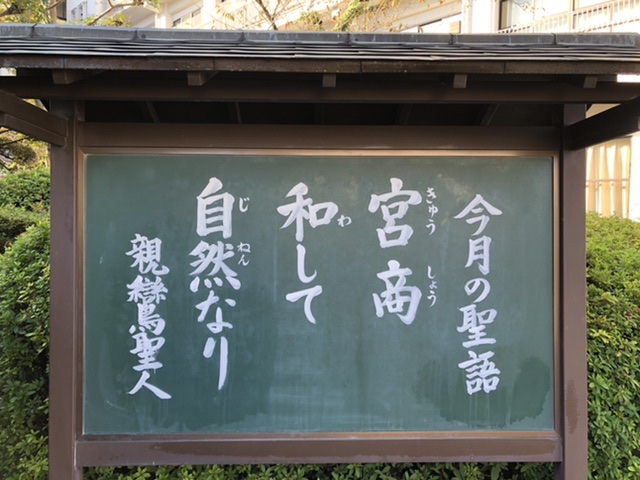 今月の聖語
宮商
きゅう しょう
和して
わ
自然なり
じ ねん
親鸞聖人